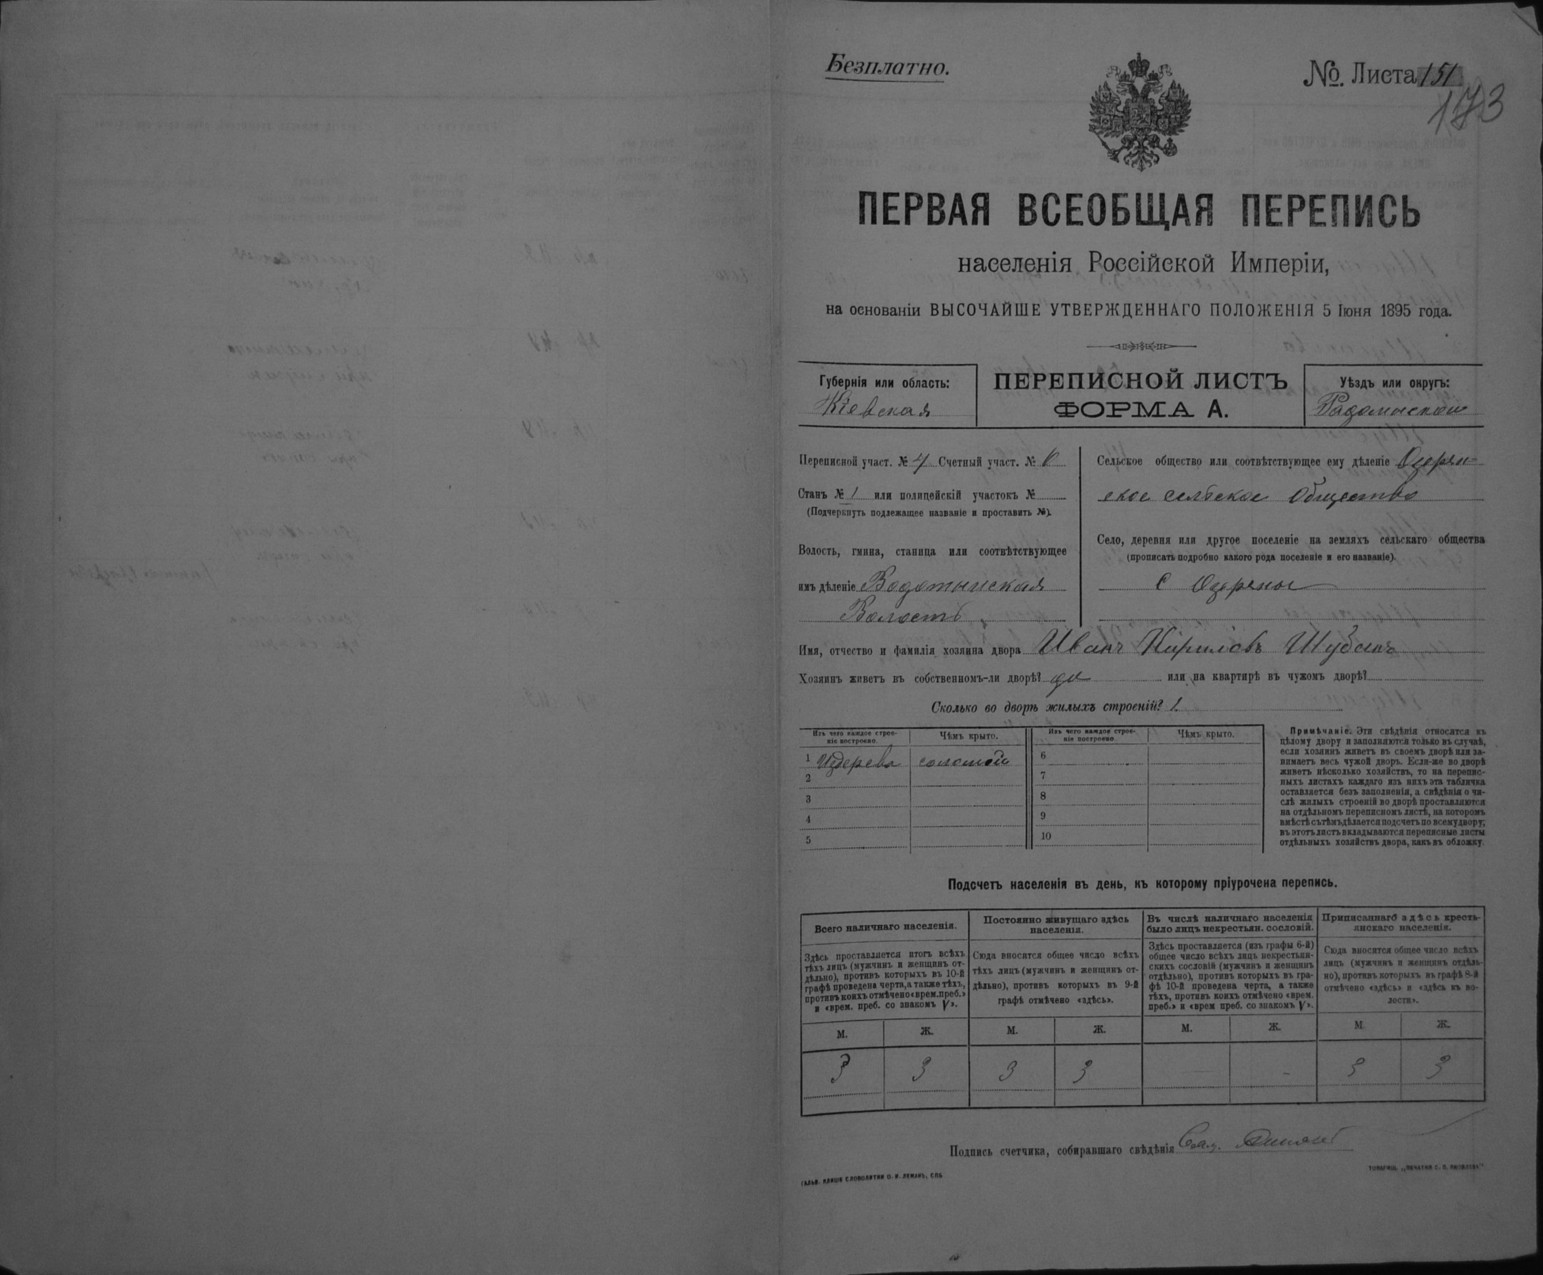 Безплатно.
№. Листа 151
173
ПЕРВАЯ ВСЕОБЩАЯ ПЕРЕПИСЬ
населенія Россійской Имперіи,
на основаніи ВЫСОЧАЙШЕ УТВЕРЖДЕННАГО ПОЛОЖЕНІЯ 5 Іюня 1895 года.
Губернія или область:
Кіевская
ПЕРЕПИСНОЙ ЛИСТЪ
ФОРМА А.
Уѣздъ или округъ:
Радомыскій
Переписной участ. № 4 Счетный участ. № 6
Станъ № 1 или полицейскій участокъ №
(Подчеркнуть подлежащее названіе и проставить №).
Волость, гмина, станица или соотвѣтствующее
имъ дѣленіе Водотыйская
Волость
Сельское общество или соотвѣтствующее ему дѣленіе Озерян
ское сельское Общество
Село, деревня или другое поселеніе на земляхъ сельскаго общества
(прописать подробно какого рода поселеніе и его названіе).
с Озеряны
Имя, отчество и фамилія хозяина двора Иванъ Кириловъ
Хозяинъ живетъ въ собственномъ-ли дворѣ? да или на квартирѣ въ чужомъ дворѣ?
Сколько во дворѣ жилыхъ строеній? 1.
Изъ чего каждое строе-
ніе построено.
Чѣмъ крыто.
Изъ чего каждое строе-
ніе построено.
Чѣмъ крыто.
1 Издерева соломой
2
3
4
5
6
7
8
9
10
Примѣчаніе. Эти свѣдѣнія относятся къ
цѣлому двору и заполняются только въ случаѣ,
если хозяинъ живетъ въ своемъ дворѣ или за-
нимаетъ весь чужой дворъ. Если-же во дворѣ
живетъ нѣсколько хозяйствъ, то на перепис-
ныхъ листахъ каждаго изъ нихъ эта табличка
оставляется безъ заполненія, а свѣдѣнія о чи-
слѣ жилыхъ строеній во дворѣ проставляются
на отдѣльномъ переписномъ листѣ, на которомъ
вмѣстѣ съ тѣмъ дѣлается подсчетъ по всему двору;
въ этотъ листъ вкладываются переписные листы
отдѣльныхъ хозяйствъ двора, какъ въ обложку.
Подсчетъ населенія въ день, къ которому пріурочена перепись.
Всего наличнаго населенія.
Здѣсь проставляется итогъ всѣхъ
тѣхъ лицъ (мужчинъ и женщинъ от-
дѣльно), противъ которыхъ въ 10-й
графѣ проведена черта, а также тѣхъ,
противъ коихъ отмѣчено «врем. преб.»
и «врем. преб. со знакомъ V».
Постоянно живущаго здѣсь
населенія.
Сюда вносится общее число всѣхъ
тѣхъ лицъ (мужчинъ и женщинъ от-
дѣльно), противъ которыхъ въ 9-й
графѣ отмѣчено «здѣсь».
Въ числѣ наличнаго населенія
было лицъ некрестьян. сословій.
Здѣсь проставляется (изъ графы 6-й)
общее число всѣхъ лицъ некрестьян-
скихъ сословій (мужчинъ и женщинъ
отдѣльно), противъ которыхъ въ гра-
фѣ 10-й проведена черта, а также
тѣхъ, противъ коихъ отмѣчено «врем.
преб.» и «врем преб. со знакомъ V».
Приписаннаго здѣсь кресть-
янскаго населенія.
Сюда вносится общее число всѣхъ
лицъ (мужчинъ и женщинъ отдѣль-
но), противъ которыхъ въ графѣ 8-й
отмѣчено «здѣсь» и «здѣсь въ во-
лости».
М. Ж. М. Ж. М. Ж. М. Ж.
3 3 3 3 - - 3 3
Подпись счетчика, собиравшаго свѣдѣнія